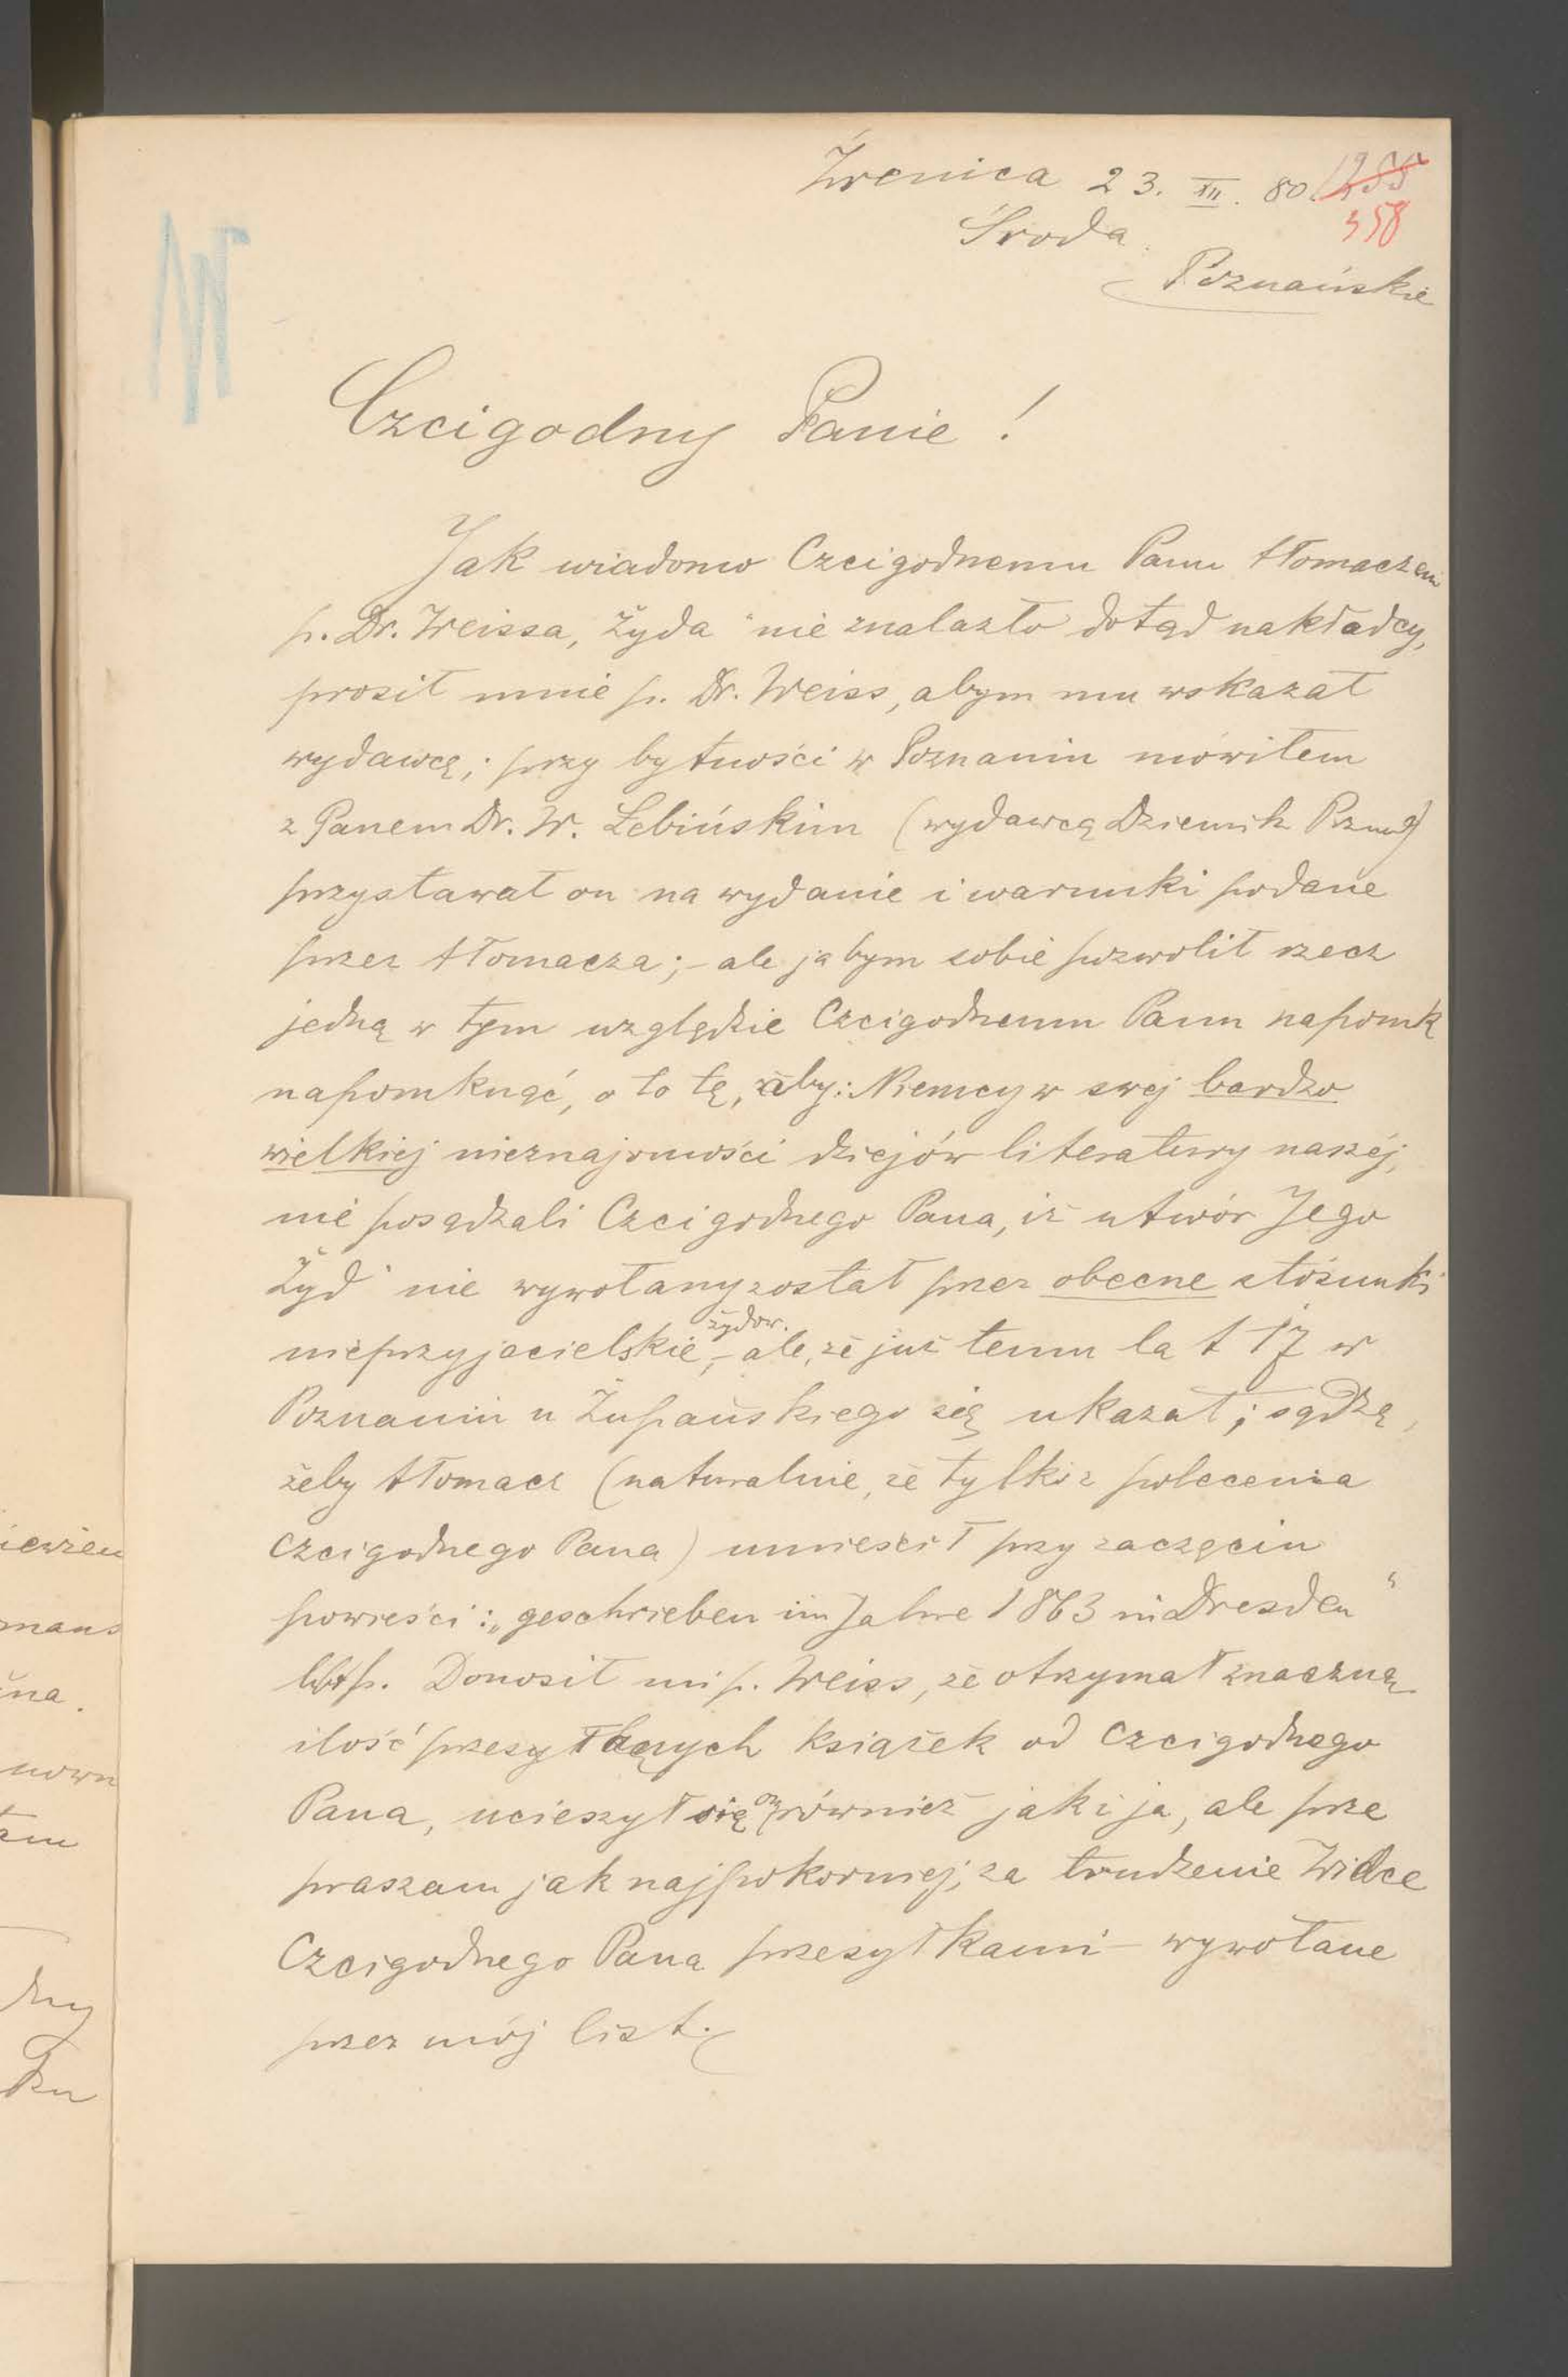 Żrenica 23. XII. 80.
255
358
Środa.
Poznańskie
Czcigodny Panie!
Jak wiadomo Czcigodnemu Panu tłomaczeni
p. Dr. Weissa, Żyda" nie znalazło dotąd nakładcy,
prosił mnie p. Dr. Weiss, abym mu wskazał
wydawcę; przy bytności w Poznaniu mówiłem
z Panem Dr. W. Łebińskim (wydawcą Dziennik Pozna)
przystawał on na wydanie i warunki podane
przez tłomacza; – ale jabym sobie pozwolił rzecz
jedną w tym względzie Czcigodnemu Panu napomk
napomknąć, o to tę, aby: Niemcy w swej bardzo
wielkiej nieznajomości dziejów literatury naszéj,
nie posądzali Czcigodnego Pana, iż utwór Jego
Żyd" nie wywołany został przez obecne stósunki
żydow.
nieprzyjacielskie, – ale, że już temu lat 17 w
Poznaniu u Żupańskiego się ukazał; sądzę,
żeby tłomacz (naturalnie, że tylko z polecenia
Czcigodnego Pana) umieścił przy zaczęciu
powieści: „geschrieben im Jahre 1863 in Dresden"
Donosił mi p. Weiss, że otrzymał znaczną
ilość książek od Czcigodnego
Pana, ucieszył się on również jak i ja, ale prze
praszam jak najpokorniej, za trudzenie Wielce
Czcigodnego Pana przesyłkami – wywołane
przez mój list.
iewien
mans
na.
nown
am
dny